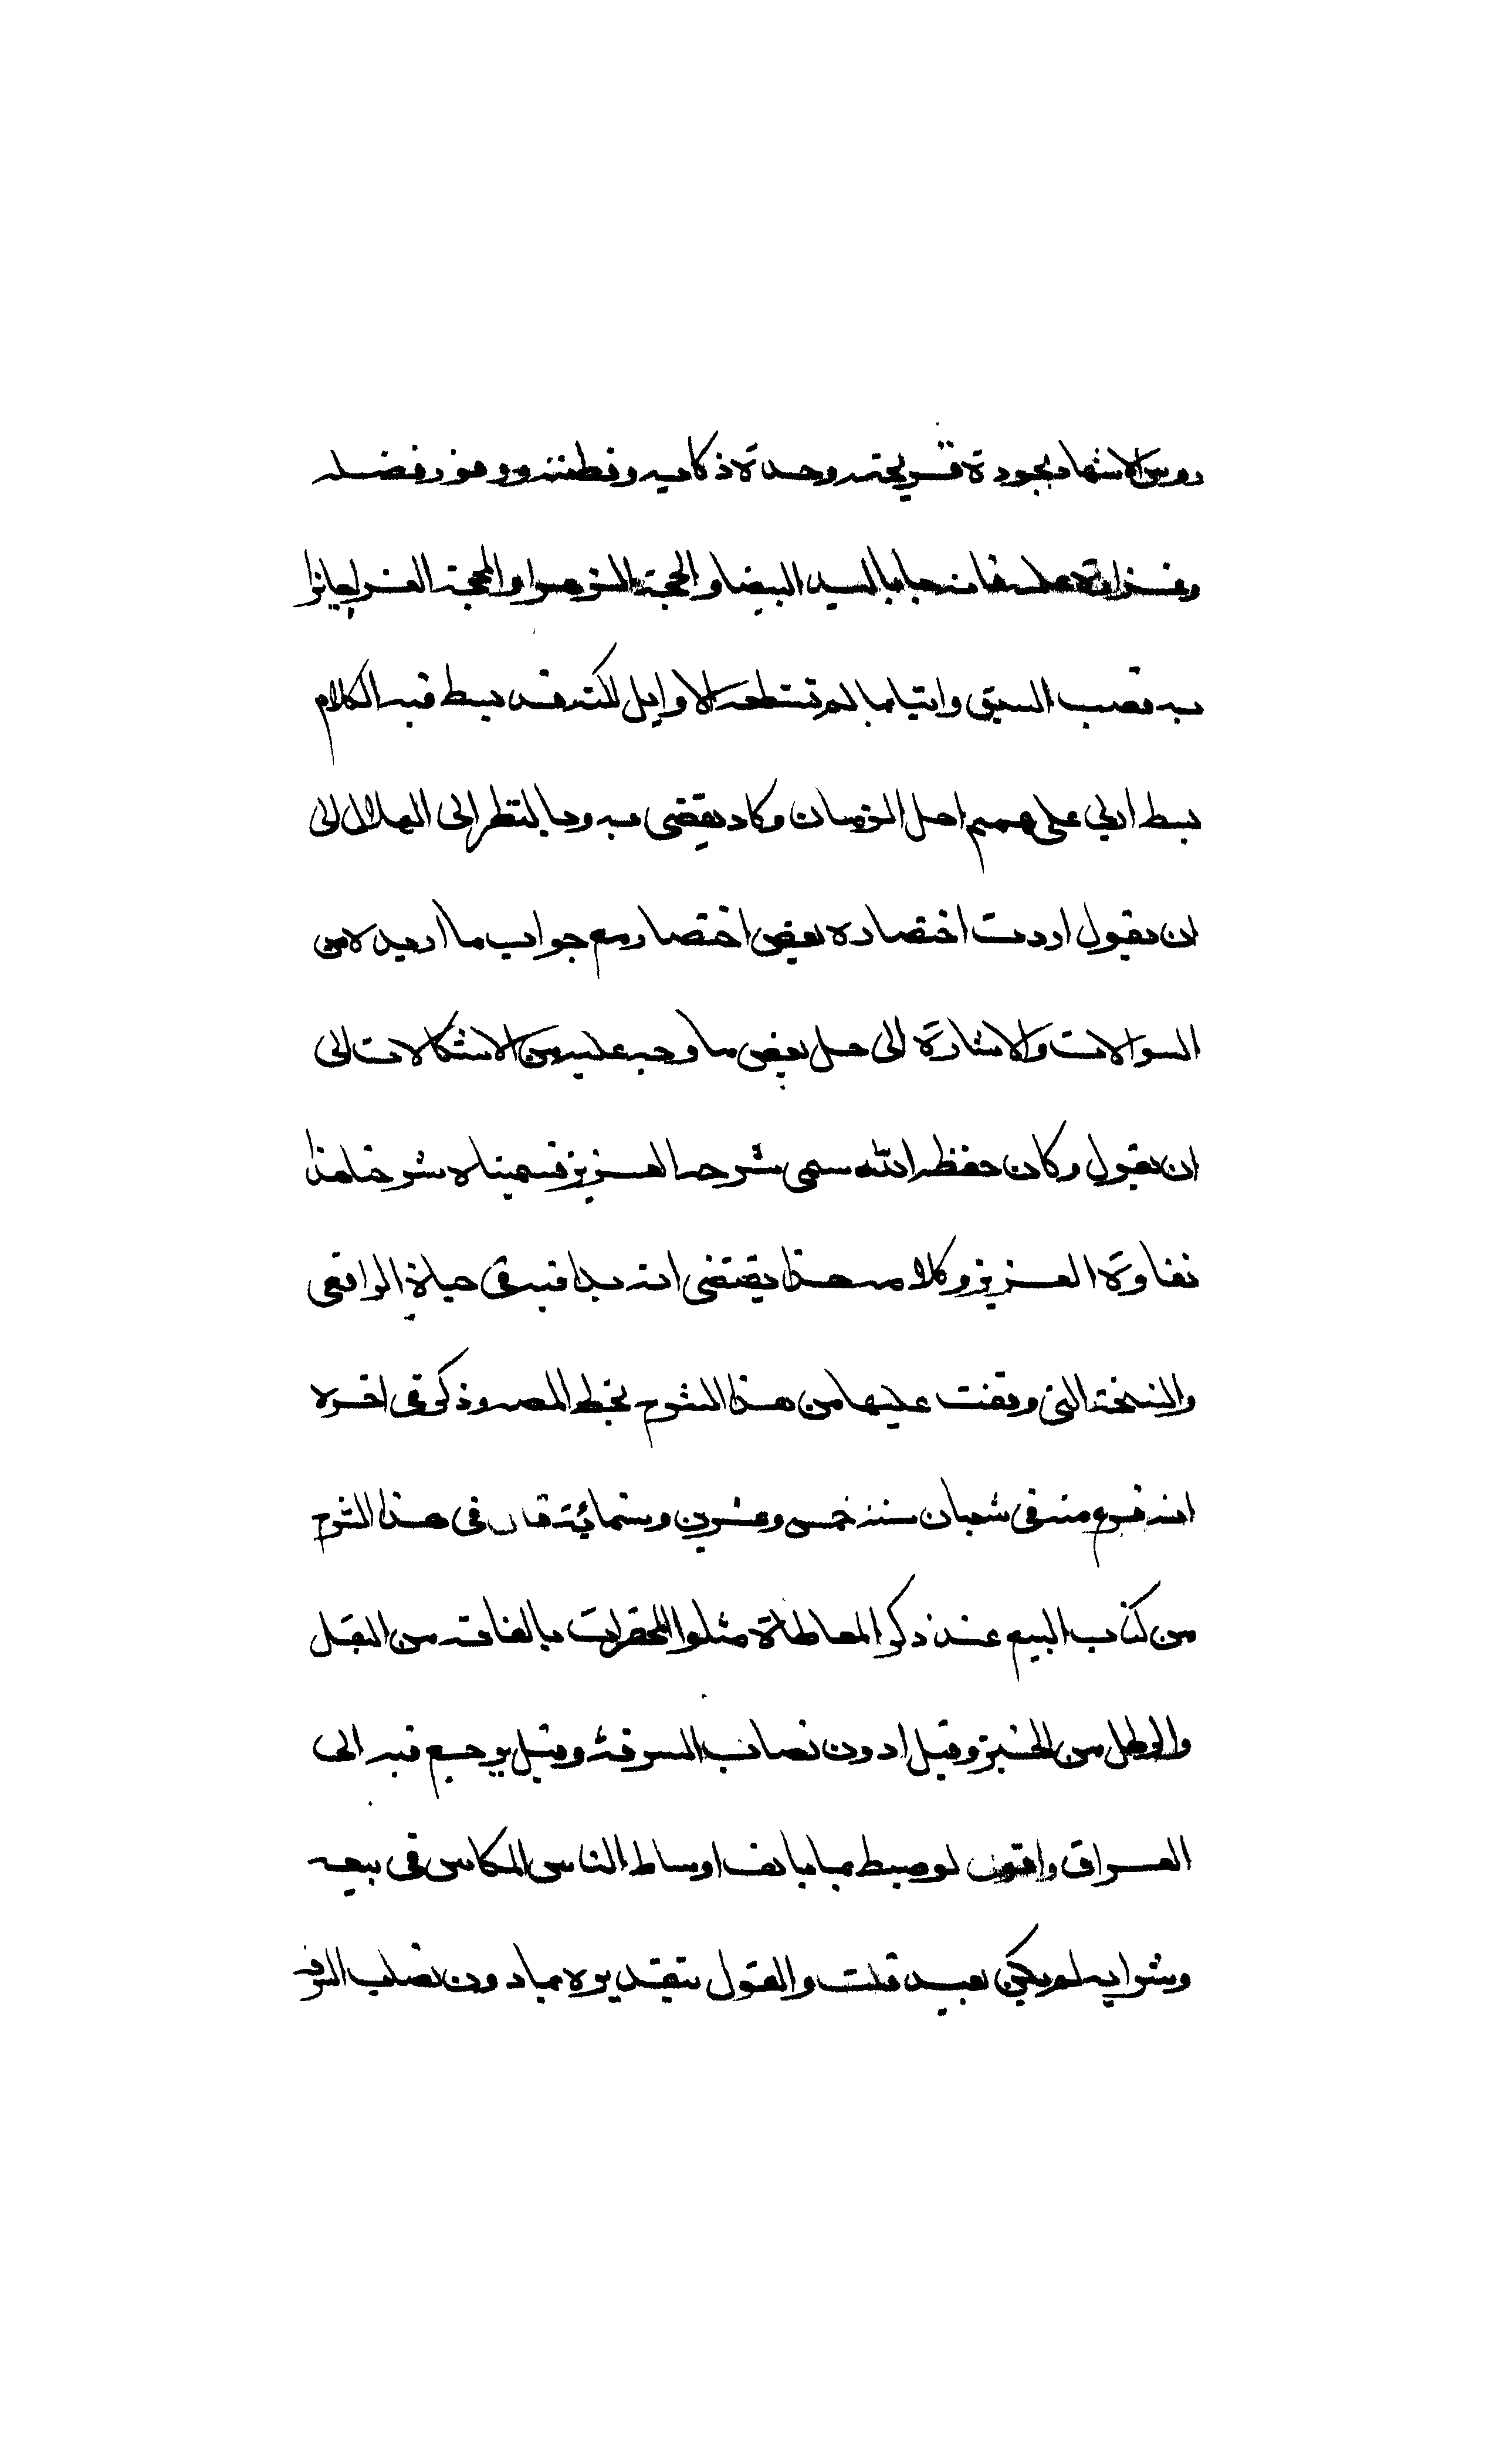 روس الاشهاد بجودة قريحته وحدة ذكايه وفطنته ووفور فضله
وغزارة علمه فانه جا باليد البيضا والحجة الزهرا والمحجة الغرا فايزا
به قصب السبق واتيا بما لم تستطعه الاوايل لكنه قد بسط فيه الكلام
بسط اربي على همم اهل الزمان وكاد يقضي به وبالنظر الى الملال الى
ان يقول اردت اختصاره بعض اختصار مع جواب ما ارده من
السوالات والاشارة الى حل بعض ما وجه عليه من الاشكالات الى
ان يقول وكان حفظه الله سمى شرحه العزيز فسميناه شرحنا هذا
نقاوة العزيز وكلامه هذا يقتضي انه بدا فيه في حياة الرافعي
والنسخة التي وقفت عليها من هذا الشرح بخط المص وذكر في اخره
انه فرغ منه في شعبان سنة خمس وعشرين وستمائة قال في هذا الشرح
من كتاب البيع عند ذكر المعاطاة مثلوا المحقرات بالفاقة من البقل
والرطل من الخبز وقيل ادون نصاب السرقة وقيل يرجع فيه الى
العراق واقول لو ضبط بما يانف اوساط الناس المكاس في بيعه
وشرايه لم يكن بعيد قلت والقول بتقديره بما دون نصاب السرقة